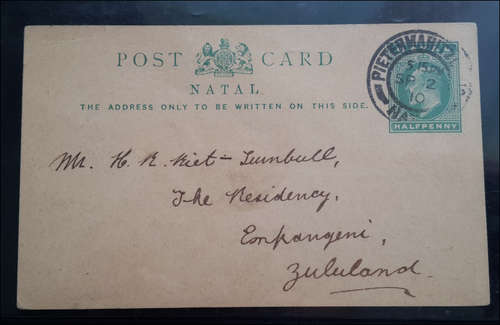 POST CARD
NATAL.
THE ADDRESS ONLY TO BE WRITTEN ON THIS SIDE.
PIETERMARITZ
SP 2
10
NA
HALFPENNY
Mr. H. R. Niet - Turnbull,
The Residency,
Empangeni,
Zululand.